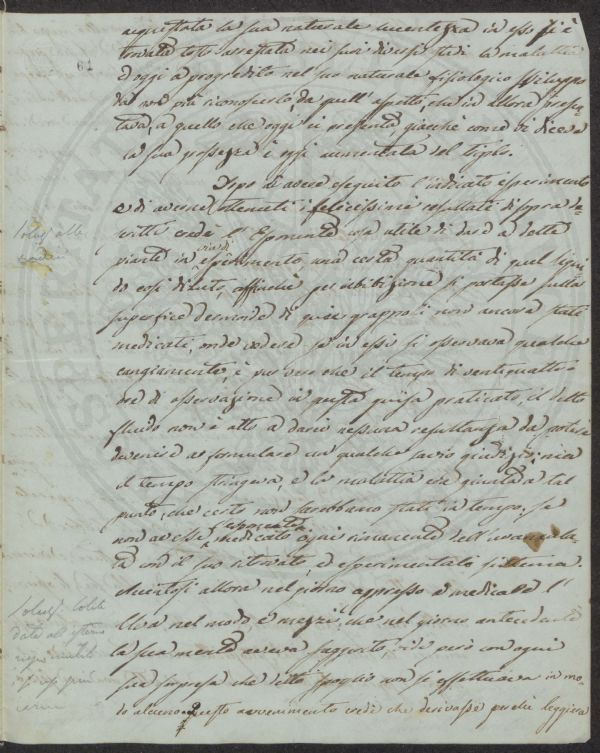 acquistata la sua naturale lucentezza ed esso si è
trovato tutto arrestata nei suoi diversi stadi la malattia
61
d'oggi à progredito nel suo naturale fisiologico sviluppo
da non più riconoscerlo da quell'aspetto, che in allora presen-
tava, a quello che oggi ci presenta, giacchè come vi diceva
la sua grossezza è oggi aumentata del triplo.
Dopo di avere eseguito l'indicato esperimento
e di averne ottenuti i felicissimi resultati di sopra de-
scritti credè l'Esponente cosa utile di dare a dette
piante in via di esperimento una certa quantità di quel liqui
do così diluito, affinchè per imbibizione si portasse sulla
superfice de grappoli non ancora stati
medicati, onde vedere se in essi si osservava qualche
cangiamento, è pur vero che il tempo di ventiquattro
ore di osservazione in questa guisa praticato, il detto
fluido non è atto a darci nessuna resultanza da potere
devenire a formulare un qualche savio giudizio; ma
il tempo stringeva, e la malattia era giunta a tal
punto, che certo non sarebbamo stati in tempo, se
non avesse medicato ogni rimanente dell'uva mala-
ta con il suo ritrovato, ed esperimentato sistema.
Accintosi allora nel giorno appresso a medicare l'
Uva nel modo, e mezzi, che nel giorno antecedente
la sua mente aveva suggerito, vide però con ogni
sua sorpresa che detto spoglio non si effettuava in mo-
do alcuno. Questo avvenimento credè che derivasse perchè leggiera